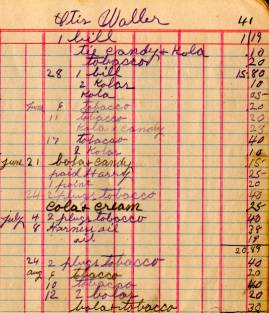 Otis Waller 41
1 bill 1/19
tie candy & Kola 10
tobacco 20
28 1 bill 15.80
2 Kolas 10
Kola 05
June 9 tobacco 20
11 tobacco 20
Kola & candy 23
17 tobacco 40
2 Kolas 10
June 21 bola & candy 15
paid Harry 25
1 point 20
24 2 plugs tobacco 40
Cola & cream 25
July 4 2 plugs tobacco 40
8 Harness oil 38
oil 18
20.89
24 2 plugs tobacco 40
aug 9 tobacco 20
10 tobacco 40
12 2 bolas 20
bola & tobacco 30